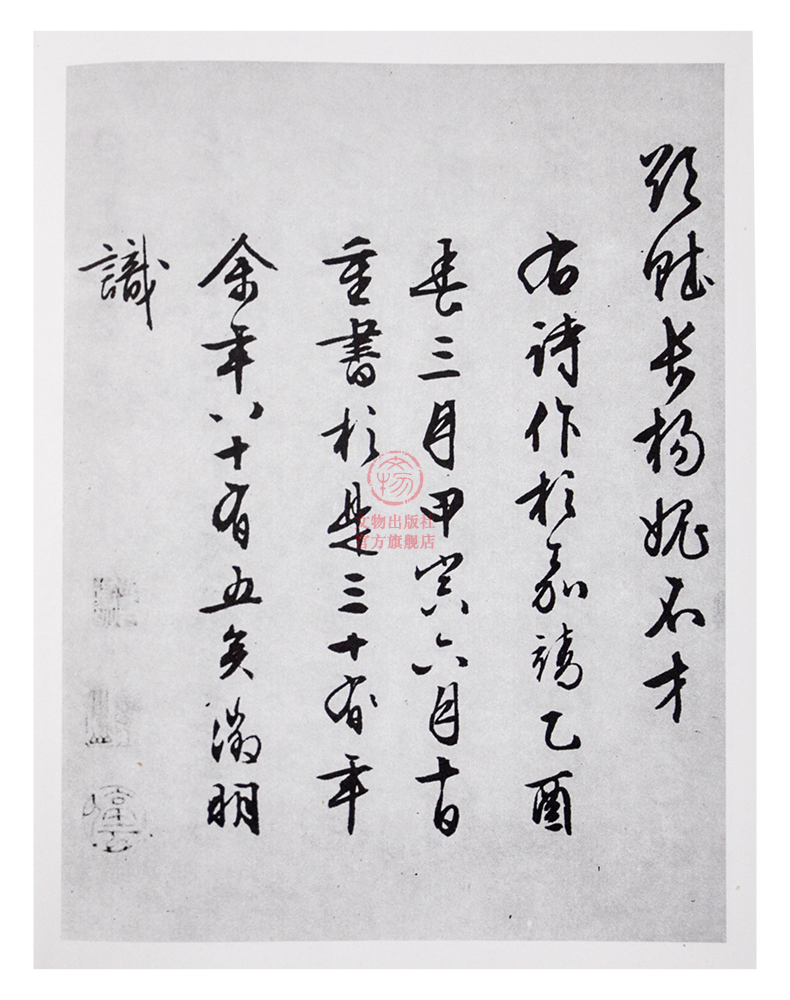 欲賦長楊媿不才
右詩作於嘉靖乙酉
春三月甲寅六月十日
重書於是三十有年
余年八十有五矣徵明
識
文物出版社
官方旗舰店